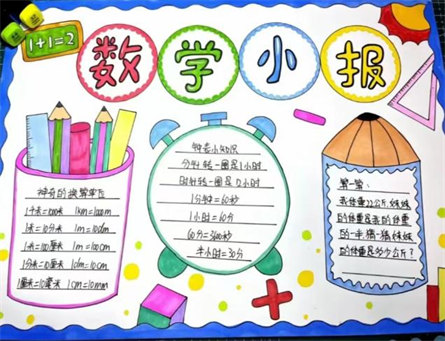 1+1=2
数学小报
神奇的换算单位
1千米=1000米 1km=1000m
1米=10分米 1m=10dm
1米=100厘米 1m=100cm
1分米=10厘米 1dm=10cm
1厘米=10毫米 1cm=10mm
钟表小知识
分针转一圈是1小时
时针转一圈是12小时
1分钟=60秒
1小时=60分
60分=3600秒
半小时=30分
猜一猜:
我体重22公斤,妹妹
的体重是我的体重
的一半,猜一猜妹妹
的体重是多少公斤?